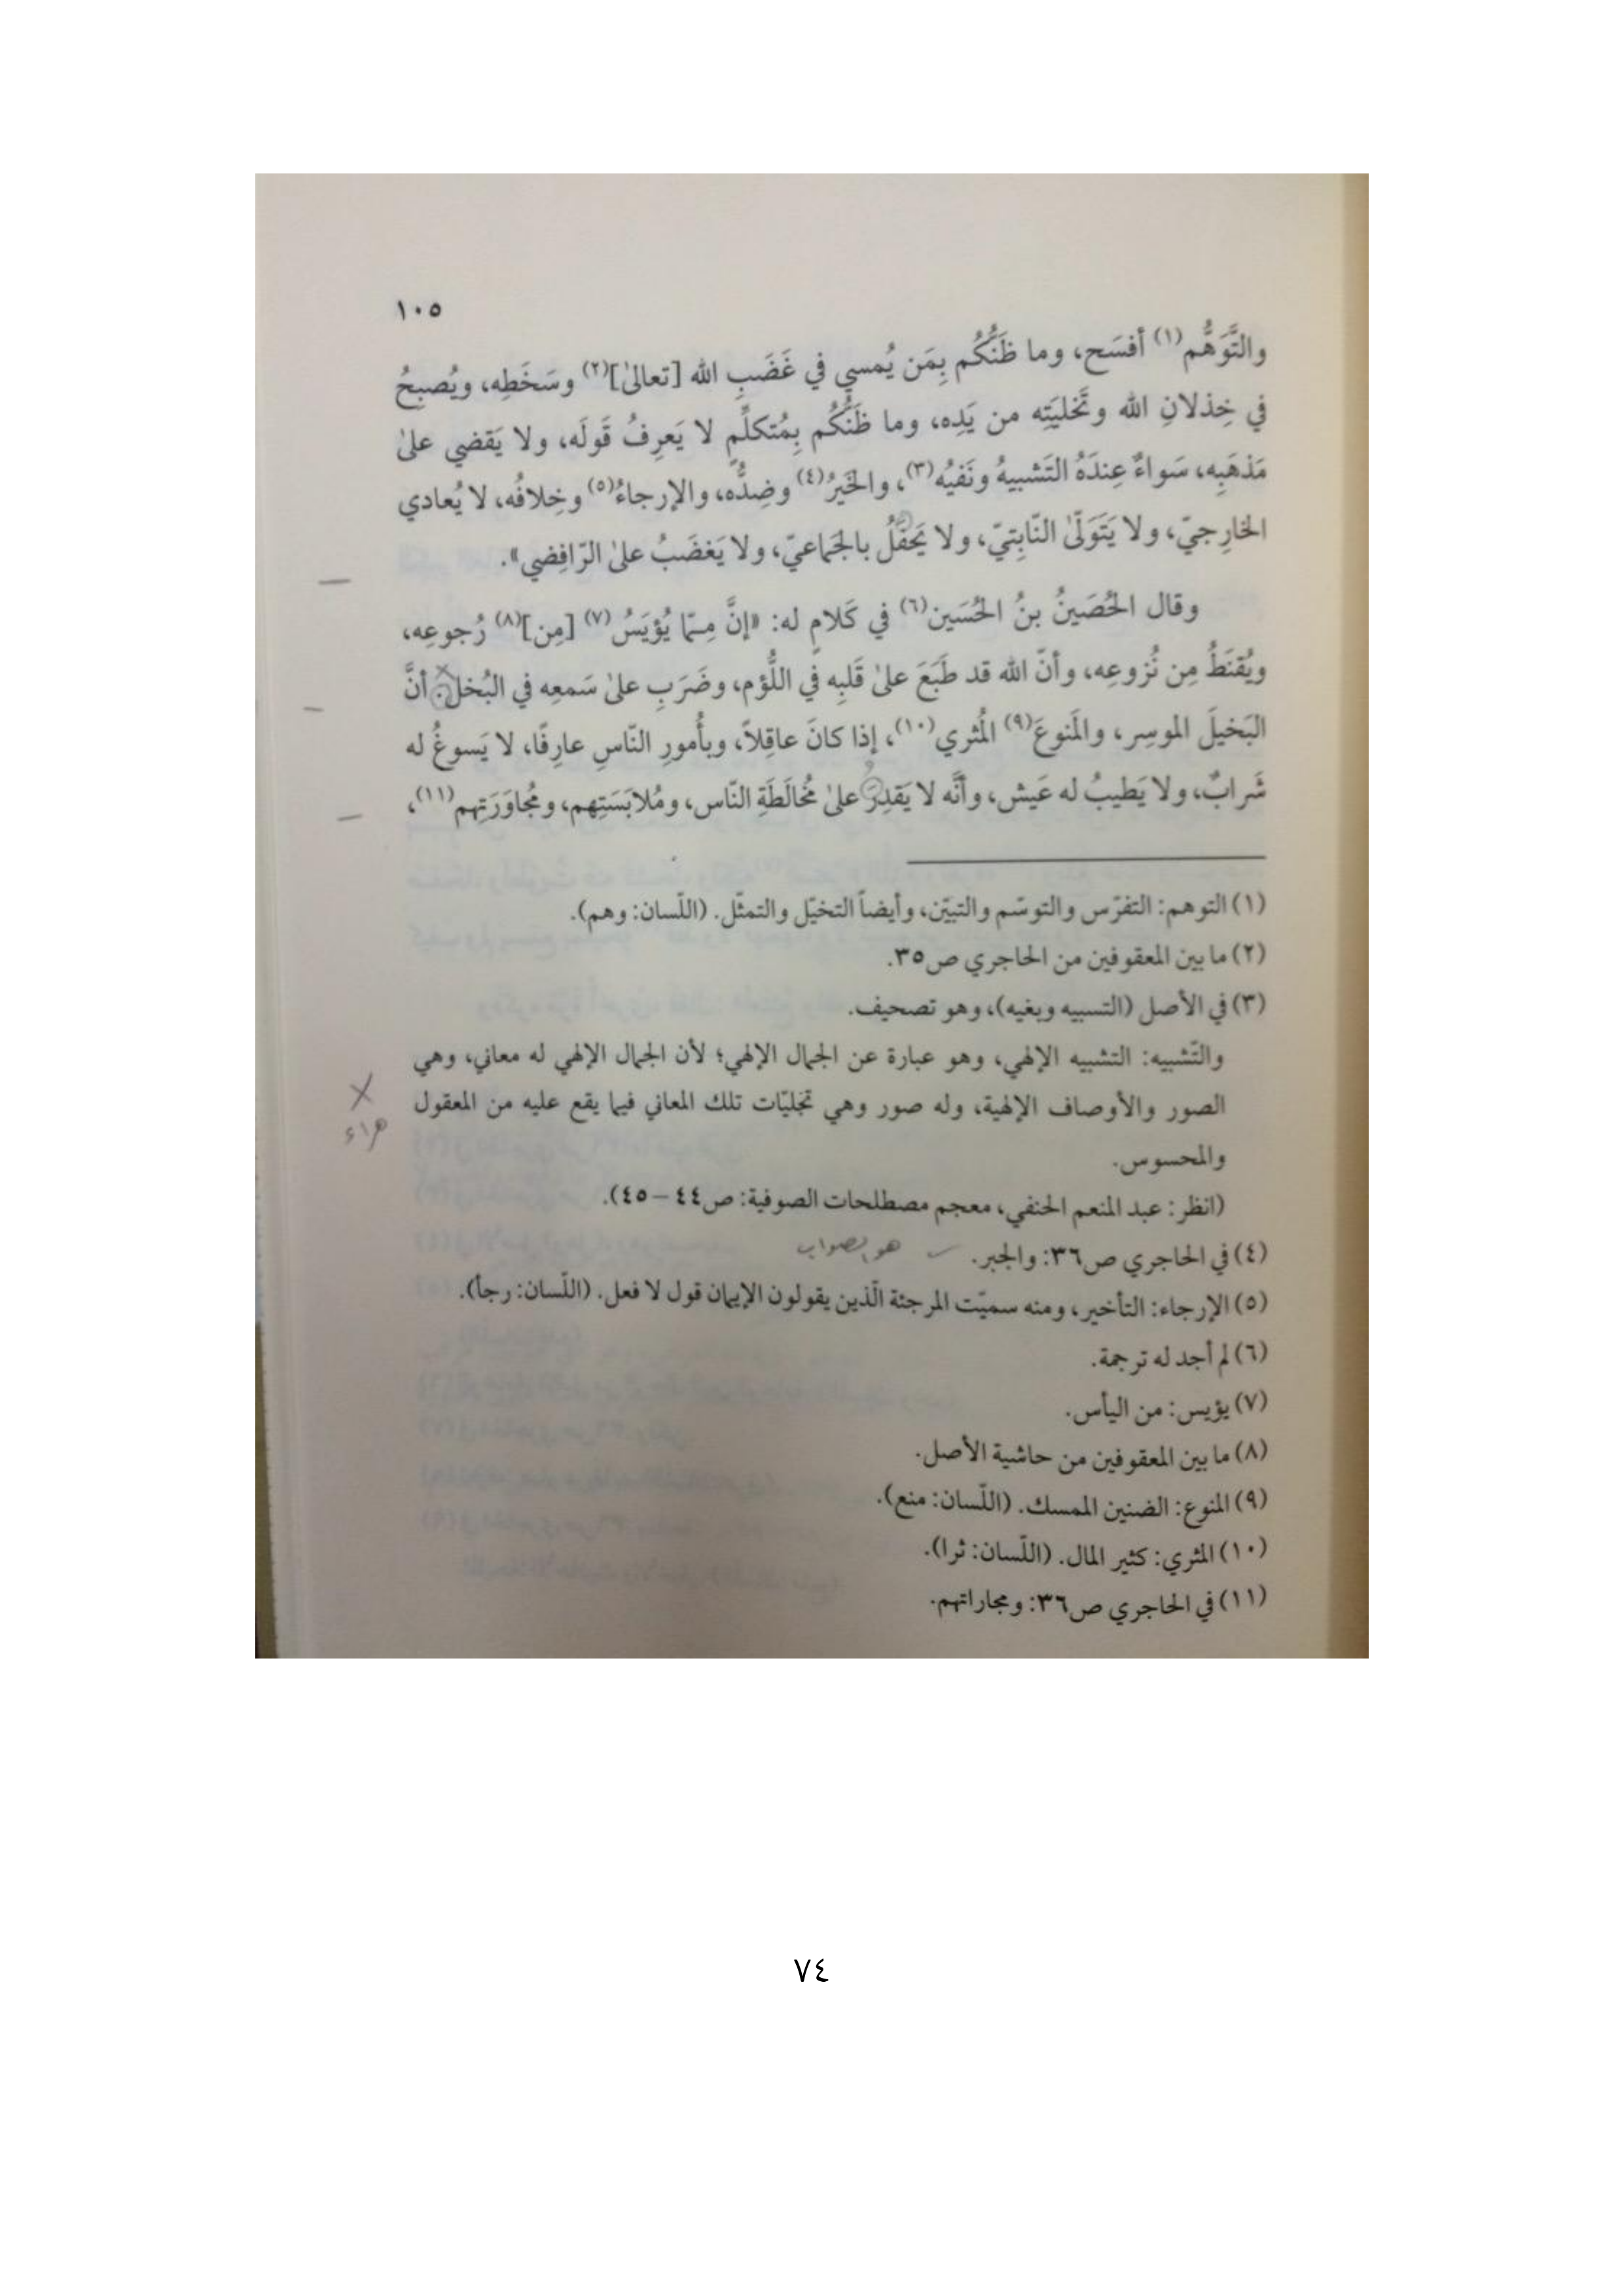 ١٠٥
والتَّوَهُّم(١) أفسَح، وما ظَنُّكُم بِمَن يُمسي في غَضَبِ الله [تعالىٰ](٢) وسَخَطِه، ويُصبِحُ
في خِذلانِ الله وتَخليَتِه من يَدِه، وما ظَنُّكُم بِمُتكلِّمٍ لا يَعرِفُ قَولَه، ولا يَقضي علىٰ
مَذهَبِه، سَواءٌ عِندَهُ التَشبيهُ ونَفيُه(٣)، والخَيرُ(٤) وضِدُّه، والإرجاءُ(٥) وخِلافُه، لا يُعادي
الخارِجيّ، ولا يَتَوَلّىٰ النّابِتيّ، ولا يَحفَلُ بالجَماعيّ، ولا يَغضَبُ علىٰ الرّافِضي».
وقال الحُصَينُ بنُ الحُسَين(٦) في كَلامٍ له: «إنَّ مِـمّا يُؤيَسُ(٧) [مِن](٨) رُجوعِه،
ويُقنَطُ مِن نُزوعِه، وأنّ الله قد طَبَعَ علىٰ قَلبِه في اللُّؤم، وضَرَبِ علىٰ سَمعِه في البُخل: أنَّ
البَخيلَ الموسِر، والمَنوعَ(٩) المُثري(١٠)، إذا كانَ عاقِلاً، وبأُمورِ النّاسِ عارِفًا، لا يَسوغُ له
شَرابٌ، ولا يَطيبُ له عَيش، وأنَّه لا يَقدِرُ علىٰ مُخالَطَةِ النّاس، ومُلابَسَتِهم، ومُجاوَرَتِهم(١١)،
(١) التوهم: التفرّس والتوسّم والتبيّن، وأيضاً التخيّل والتمثّل. (اللّسان: وهم).
(٢) ما بين المعقوفين من الحاجري ص٣٥.
(٣) في الأصل (التسبيه وبغيه)، وهو تصحيف.
والتّشبيه: التشبيه الإلهي، وهو عبارة عن الجمال الإلهي؛ لأن الجمال الإلهي له معاني، وهي
الصور والأوصاف الإلهية، وله صور وهي تجليّات تلك المعاني فيما يقع عليه من المعقول
هراء
والمحسوس.
(انظر: عبد المنعم الحنفي، معجم مصطلحات الصوفية: ص٤٤ – ٤٥).
(٤) في الحاجري ص٣٦: والجبر. هو الصواب
(٥) الإرجاء: التأخير، ومنه سميّت المرجئة الّذين يقولون الإيمان قول لا فعل. (اللّسان: رجأ).
(٦) لم أجد له ترجمة.
(٧) يؤيس: من اليأس.
(٨) ما بين المعقوفين من حاشية الأصل.
(٩) المنوع: الضنين الممسك. (اللّسان: منع).
(١٠) المثري: كثير المال. (اللّسان: ثرا).
(١١) في الحاجري ص٣٦: ومجاراتهم.
٧٤